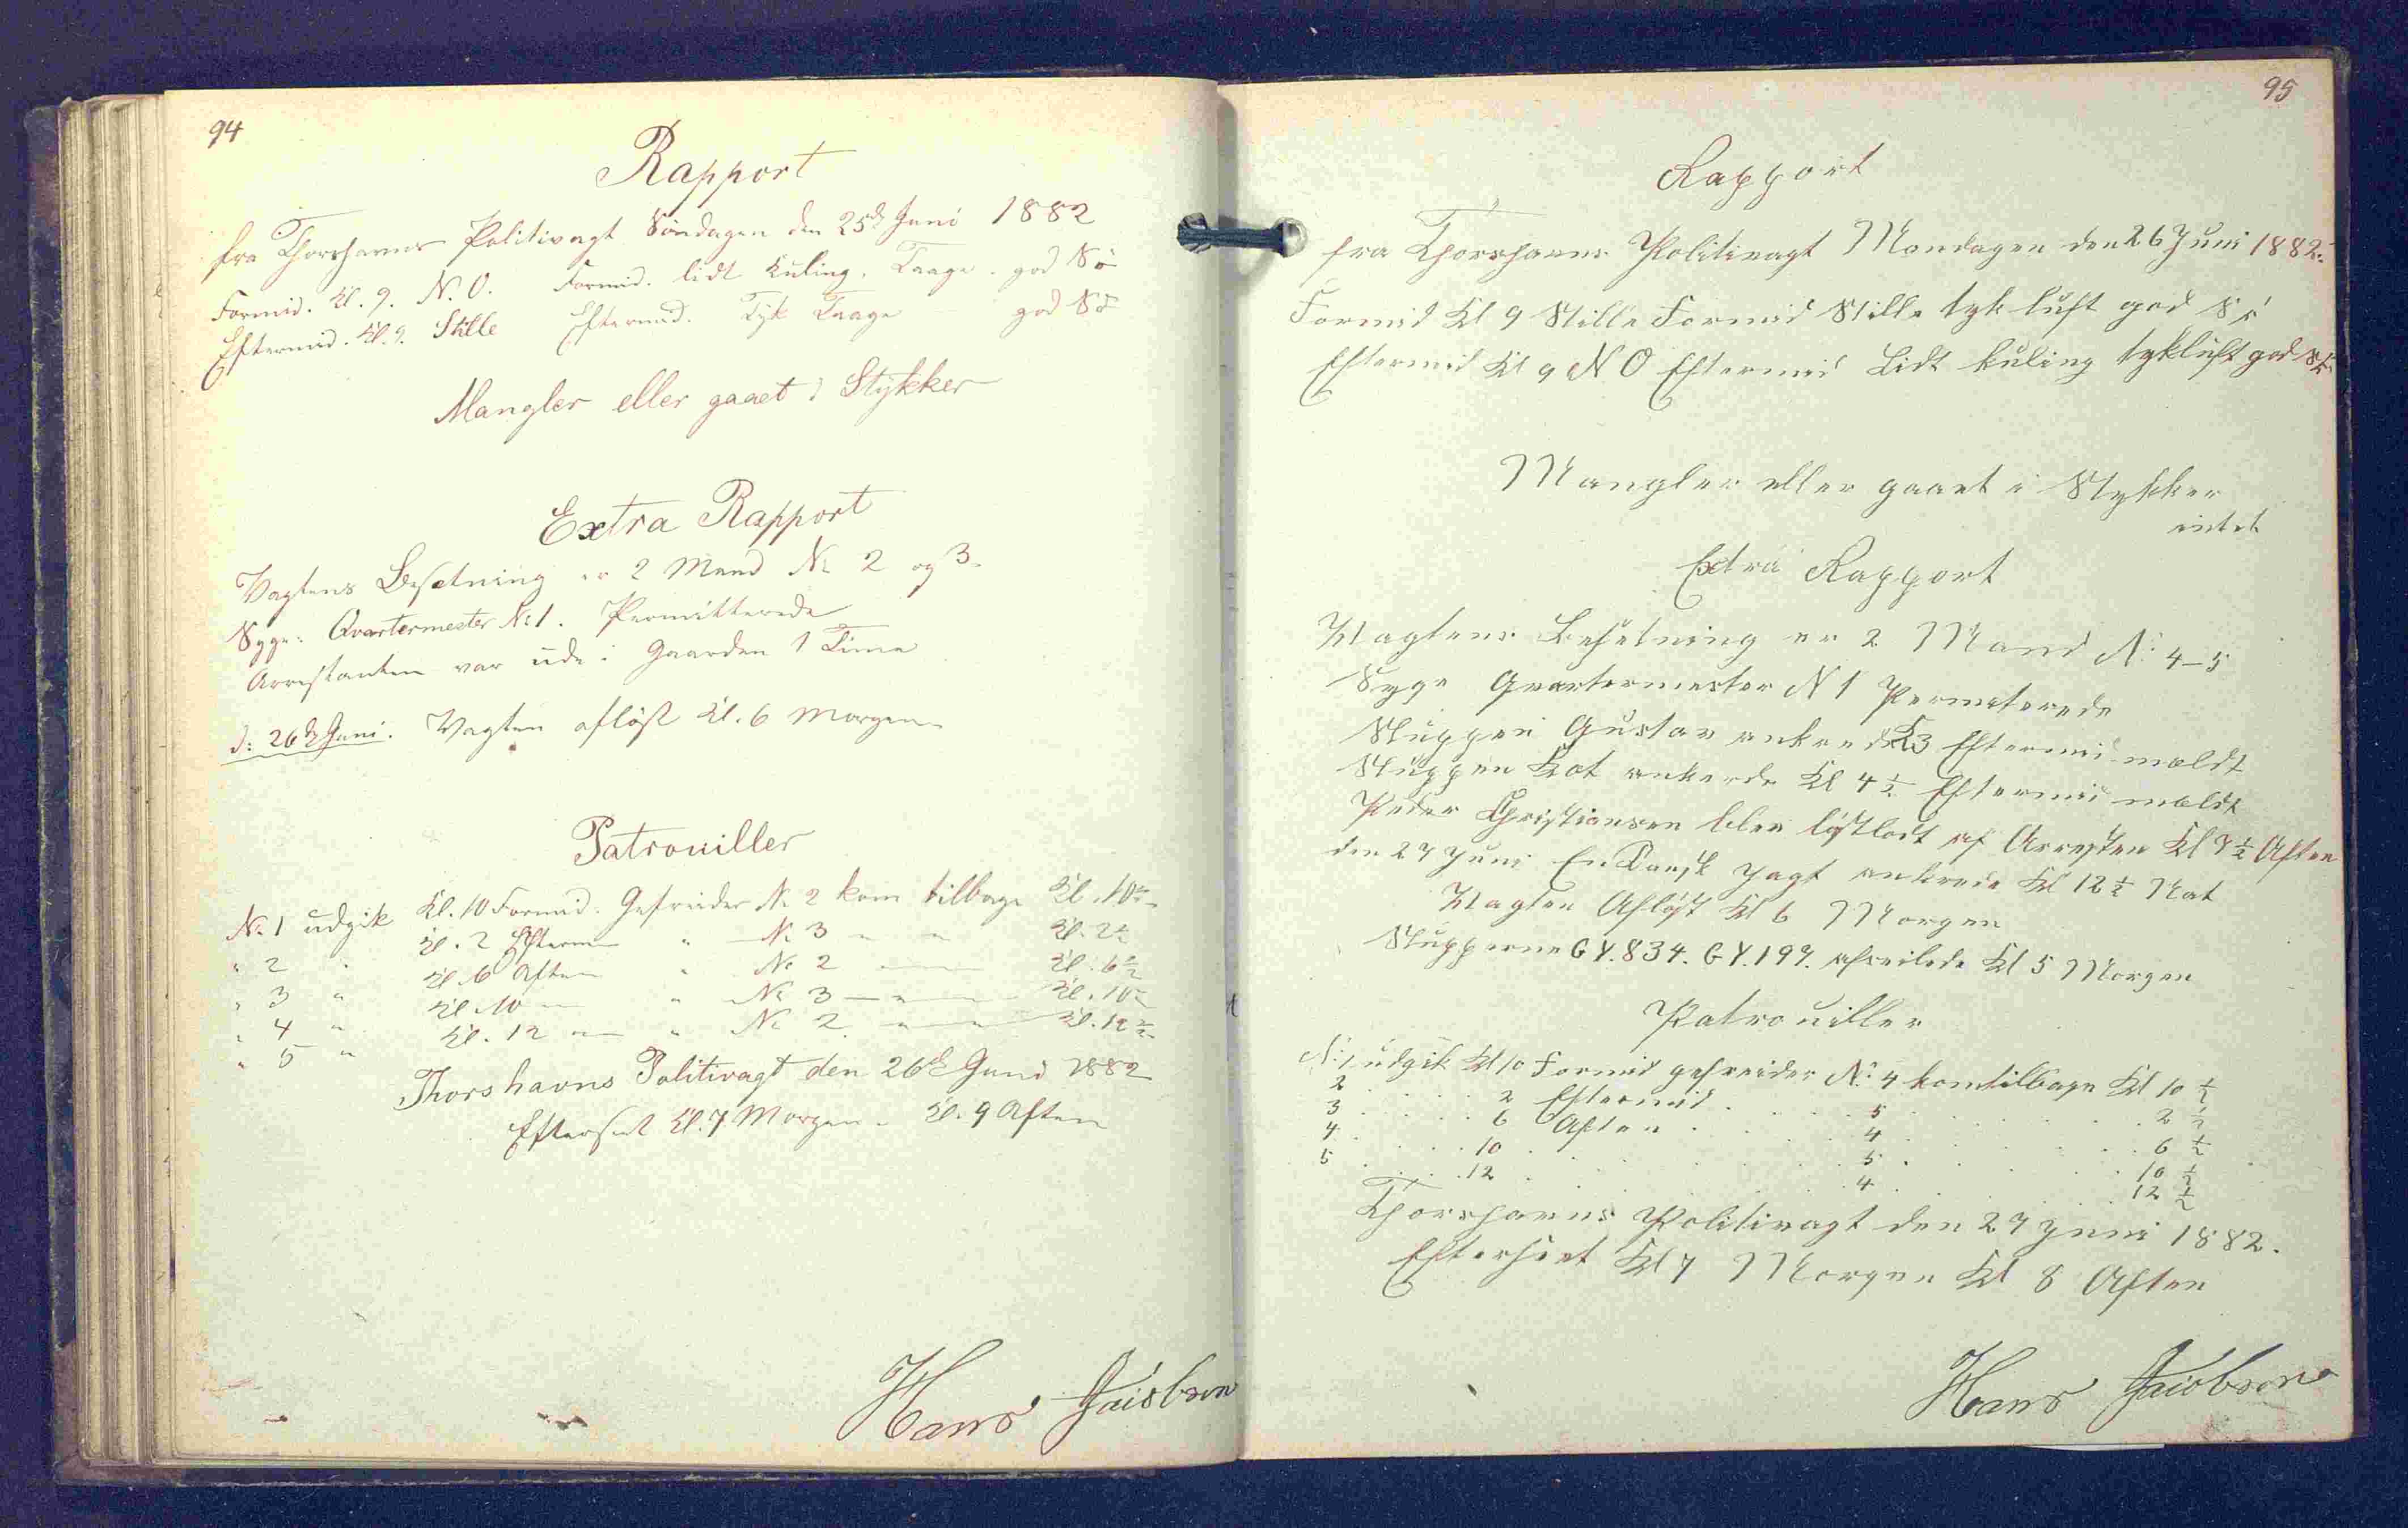 94
Rapport
fra Thorshavns Politivagt Söndagen den 25de Juni 1882
Formid. Kl. 9. N.O. Formid. lidt Kuling. Taage. god Sö
Eftermid. Kl. 9. Stille Eftermid. Tyk Taage god Sö
Mangler eller gaaet i Stykker
Extra Rapport
Vagtens Besetning er 2 Mand No 2 og 3.
Syge: Qvartermester No 1. Permitterede
Arrestanten var ude i Gaarden 1 Time
d: 26de Juni. Vagten aflöst Kl. 6 Morgen
Patrouiller
No 1 udgik Kl. 10 Formid. Gefreider No 2 kom tilbage Kl. 10½
" 2 " Kl. 2 Efterm " No 3 " " Kl. 2½
" 3 " Kl. 6 Aften " No 2 " Kl. 6½
" 4 " Kl. 10 " " No 3 " " Kl. 10½
" 5 " Kl. 12 " " No 2 " " Kl. 12½
Thorshavns Politivagt den 26de Juni 1882
Efterset Kl. 7 Morgen. Kl. 9 Aften
Hans Jacobsen
95
Rapport
fra Thorshavns Politivagt Mandagen den 26 Juni 1882.
Formid Kl 9 Stille Formid Stille tyk luft god Sö
Eftermid Kl 9 NO Eftermid Lidt kuling tykluft god Sö
Mangler eller gaaet i Stykker
intet
Extra Rapport
Vagtens Besetning er 2 Mand No: 4-5
Syge Qvartermester N 1 Permiterede
Sluppen Gustav ankrede Kl 3 Eftermid meldt
Sluppen Kot ankerde Kl 4½ Eftermid meldt
Peder Christiansen blev löstladt af Arresten Kl 7½ Aften
den 27 Juni En Dansk Jagt ankrede Kl 12½ Nat
Vagten Aflöst Kl 6 Morgen
Slupperne GY.834. GY.197. afseilede Kl 5 Morgen
Patrouiller
No: 1 udgik Kl 10 Formid gefreider No: 4 komtilbage Kl 10½
2 . . . . 2 Eftermid . . . . 5 . . . . 2½
3 . . . . 6 Aften . . . . 4 . . . . 6½
4 . . . . 10 . . . . 5 . . . . 10½
5 . . . . 12 . . . . 4 . . . . 12½
Thorshavns Politivagt den 27 Juni 1882.
Efterseet Kl 7 Morgen Kl 8 Aften
Hans Jacobsen